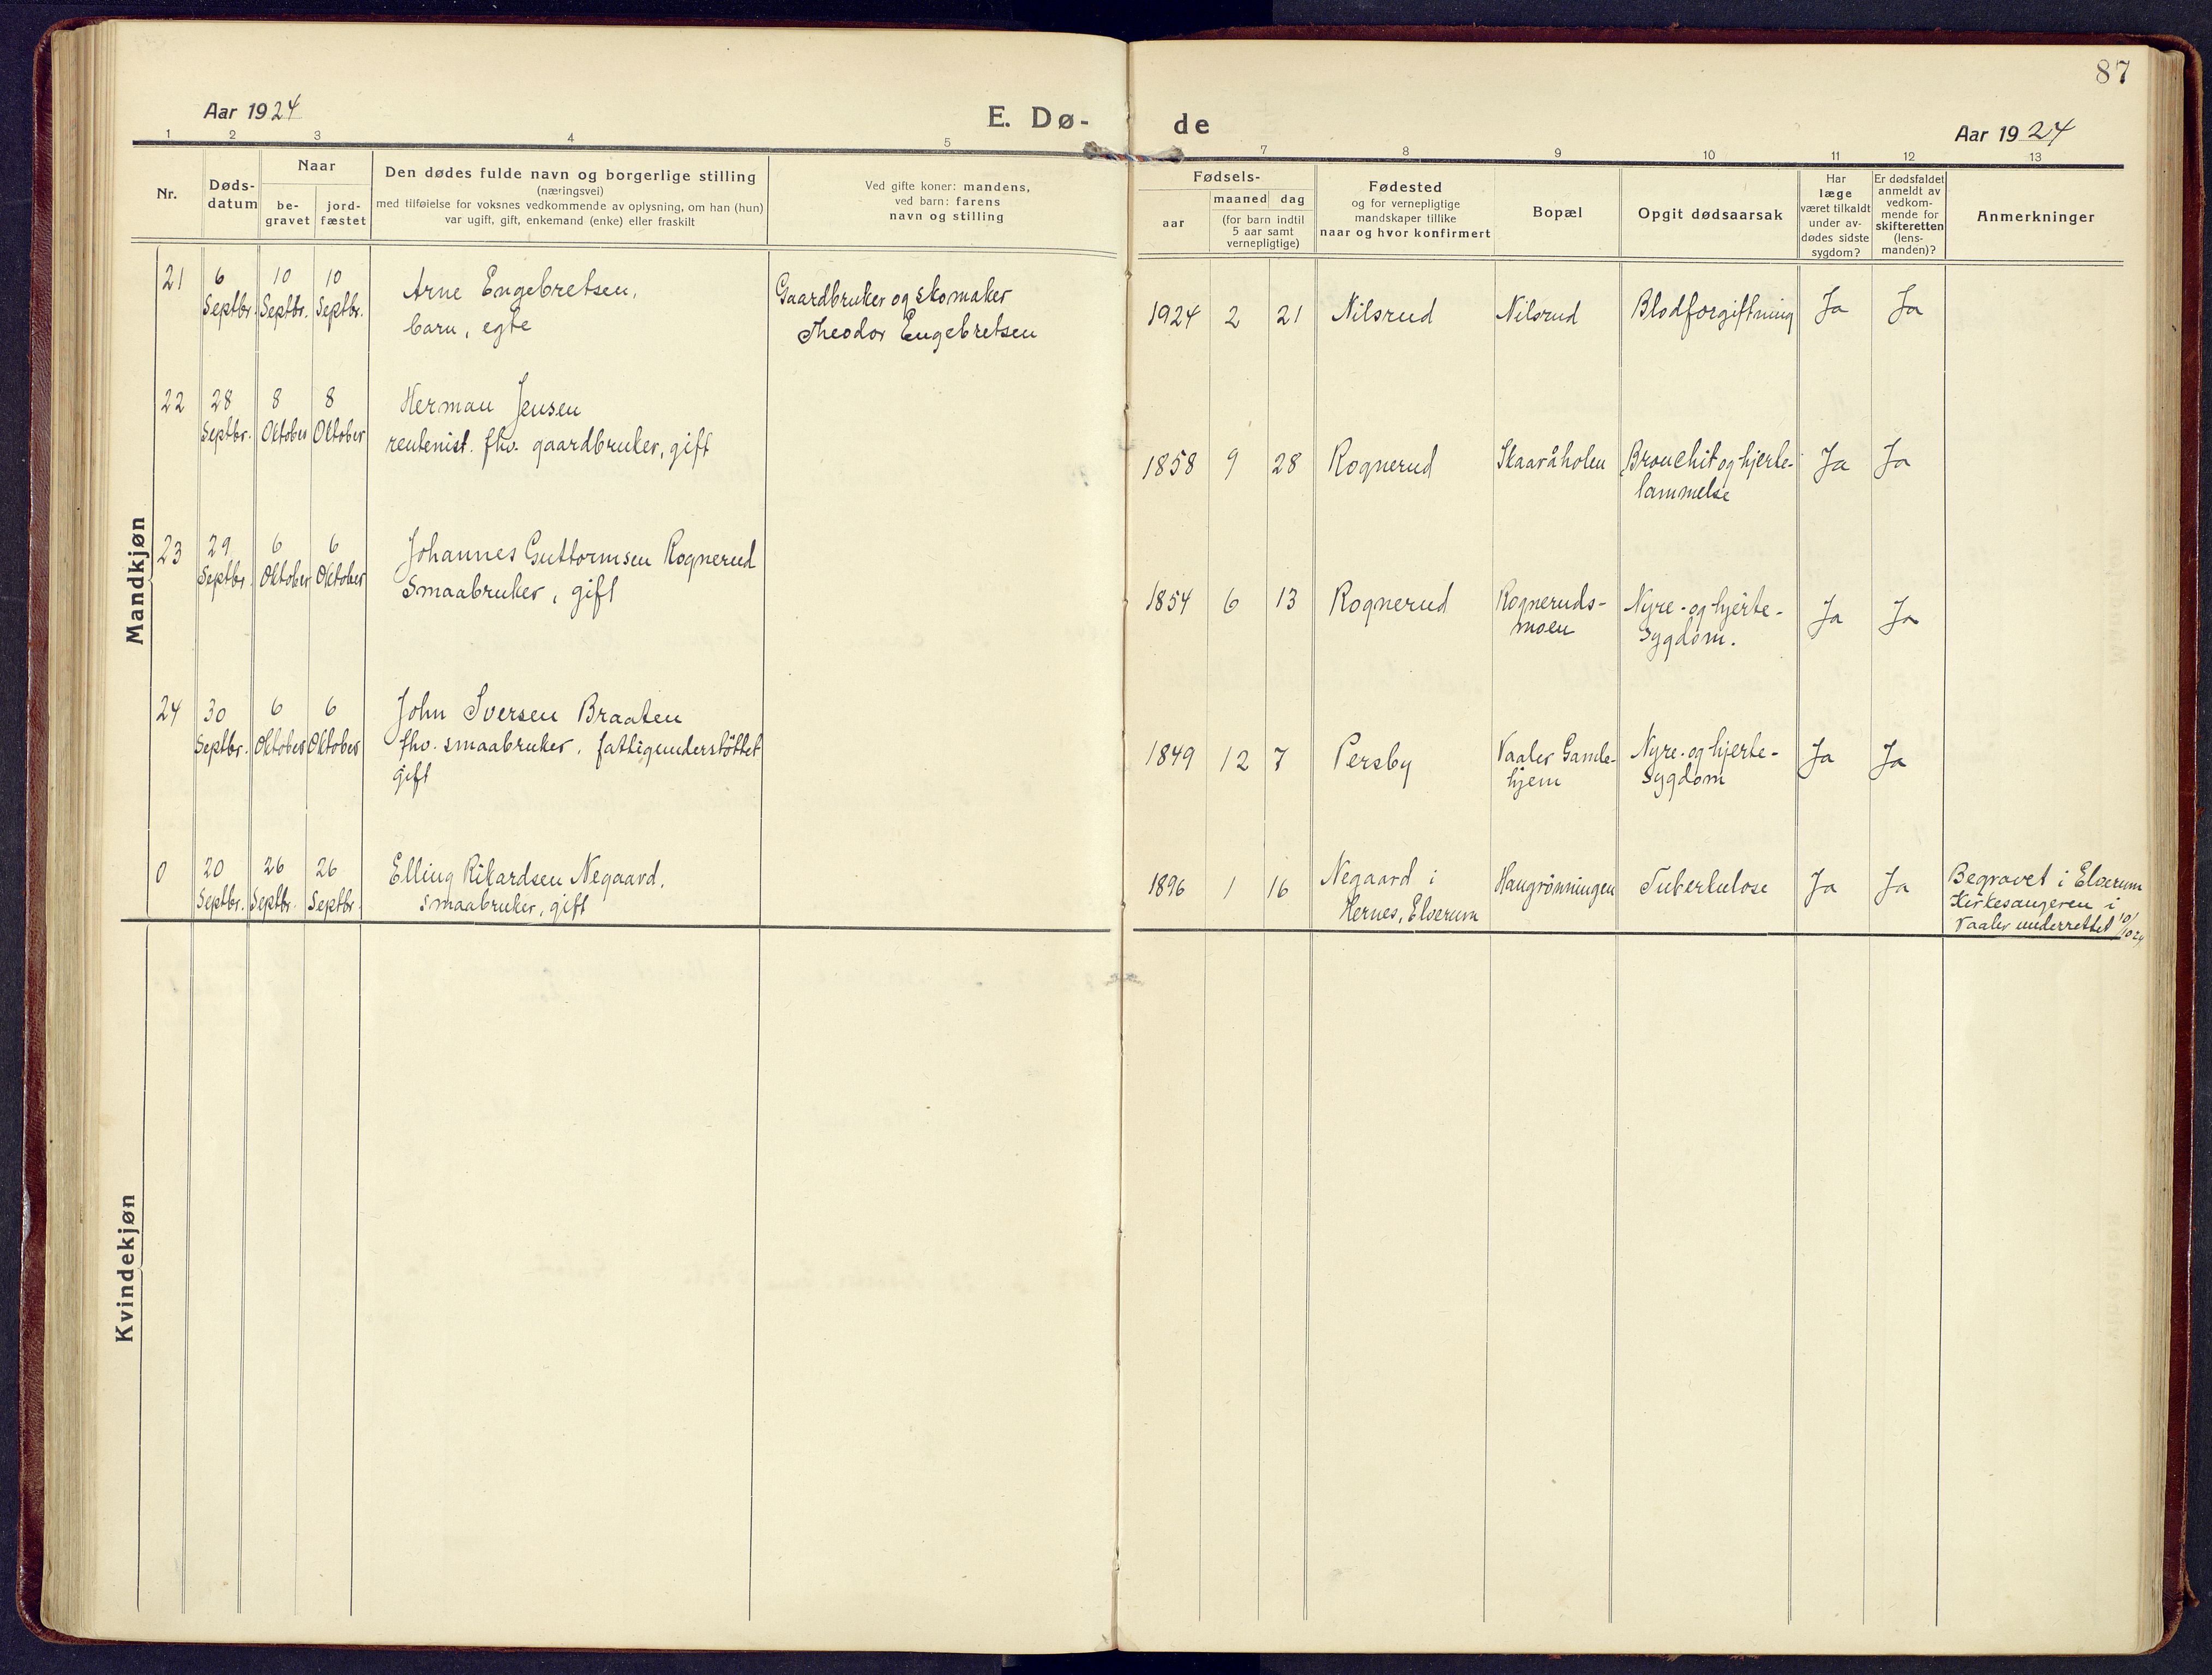 87
Aar 1924
E. Dø-
de
Aar 1924
1 2 3 4 5 7 8 9 10 11 12 13
Nr.
Døds-
datum
Naar
be-
gravet
jord-
fæstet
Den dødes fulde navn og borgerlige stilling
(næringsvei)
med tilføielse for voksnes vedkommende av oplysning, om han (hun)
var ugift, gift, enkemand (enke) eller fraskilt
Ved gifte koner: mandens,
ved barn: farens
navn og stilling
Fødsels-
aar
maaned dag
(for barn indtil
5 aar samt
vernepligtige)
Fødested
og for vernepligtige
mandskaper tillike
naar og hvor konfirmert
Bopæl
Opgit dødsaarsak
Har
læge
været tilkaldt
under av-
dødes sidste
sygdom?
Er dødsfaldet
anmeldt av
vedkom-
mende for
skifteretten
(lens-
manden)?
Anmerkninger
Mandkjøn
21 6 10 10 Arne Engebretsen, Gaardbruker og skomaker
Septbr. Septbr. Septbr. barn, egte Theodor Engebretsen
1924 2 21 Nilsrud Nilsrud Blodforgiftning Ja Ja
22 28 8 8 Herman Jensen
Septbr. Oktober Oktober rentenist. fhv. gaardbruker, gift
1858 9 28 Rognerud Skaaråholen Bronchit og hjerte- Ja Ja
lammelse
23 29 6 6 Johannes Guttormsen Rognerud
Septbr. Oktober Oktober Smaabruker, gift
1854 6 13 Rognerud Rogneruds- Nyre- og hjerte- Ja Ja
moen sygdom.
24 30 6 6 John Iversen Braaten
Septbr. Oktober Oktober fhv. smaabruker, fattigunderstöttet
gift
1849 12 7 Persby Vaaler Gamle- Nyre- og hjerte- Ja Ja
hjem sygdom
0 20 26 26 Elling Rikardsen Negaard,
Septbr. Septbr. Septbr. smaabruker, gift
1896 1 16 Negaard i Haugrönningen Tuberkulose Ja Ja Begravet i Elverum
Hernes, Elverum Kirkesangeren i
Vaaler underrettet 10/10 24
Kvindekjøn